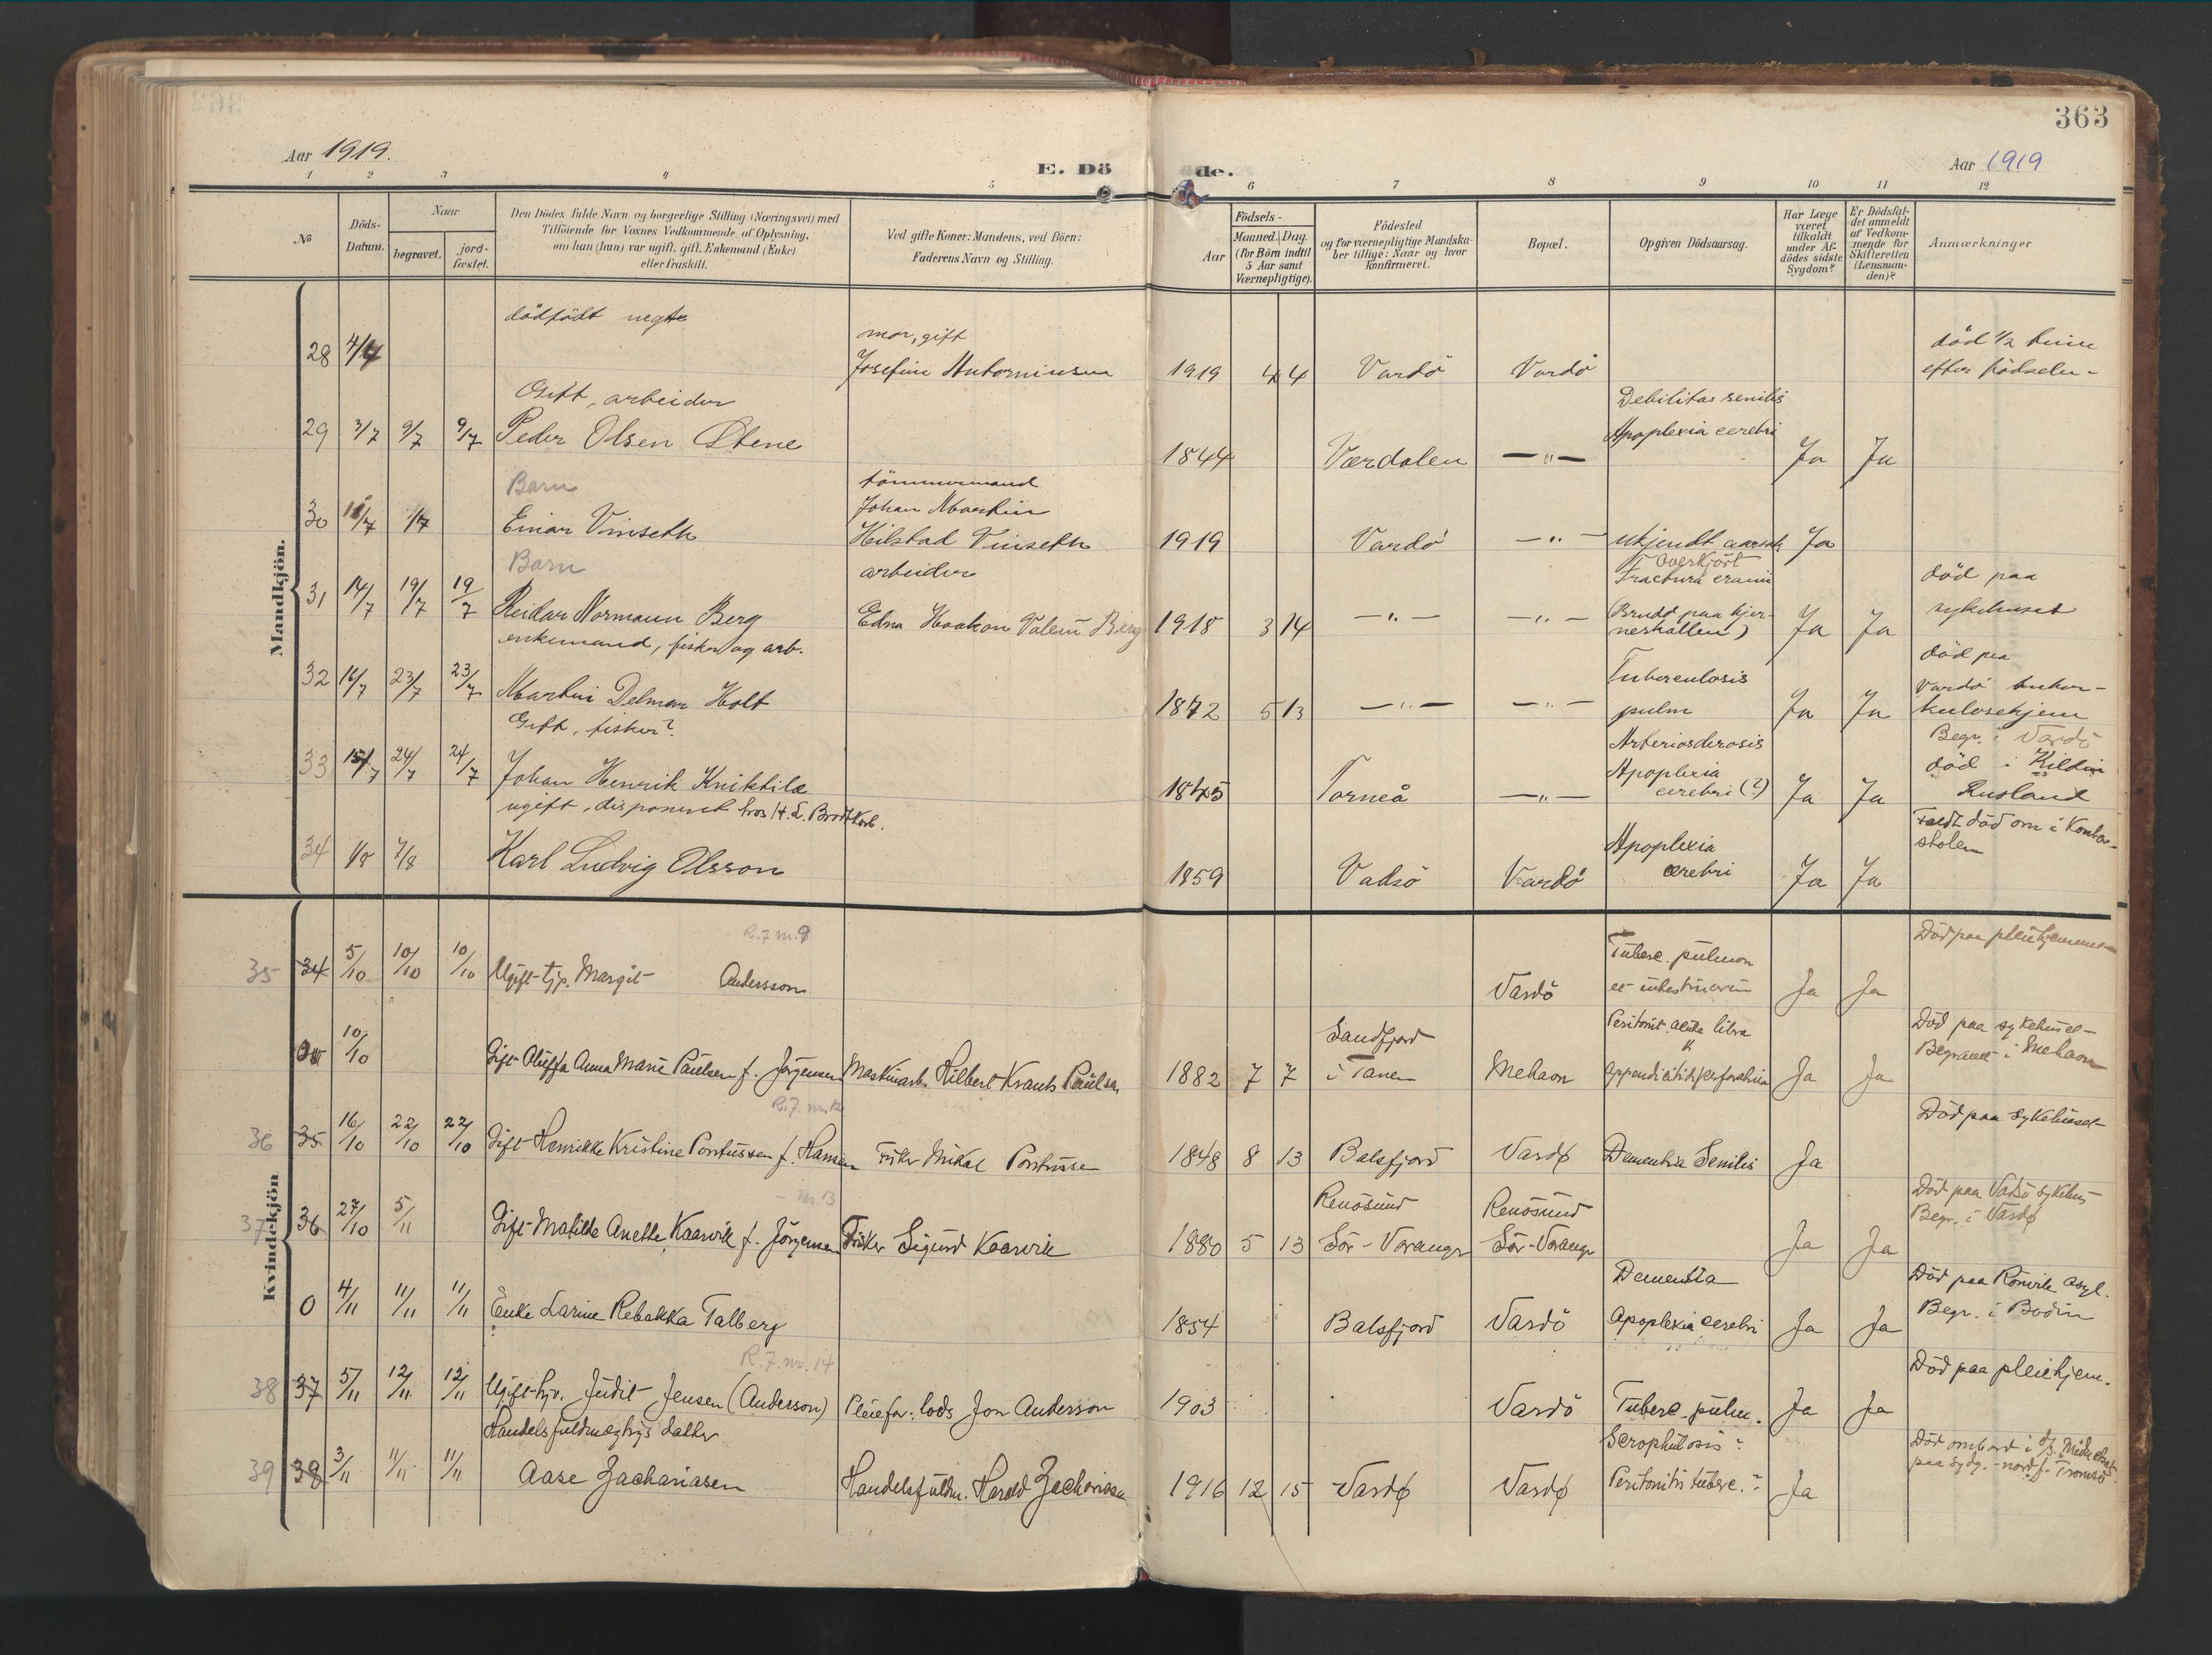 363
Aar 1919.
E. Dö
de.
Aar 1919
1 2 3 4 5 6 7 8 9 10 11 12
No
Döds-
Datum.
Naar
begravet.
jord-
fæstet.
Den Dödes fulde Navn og borgerlige Stilling (Næringsvei) med
Tilföiende for Voxnes Vedkommende af Oplysning,
om han (hun) var ugift, gift, Enkemand (Enke)
eller fraskilt.
Ved gifte Koner: Mandens, ved Börn:
Faderens Navn og Stilling.
Födsels-
Aar
Maaned. Dag.
(for Börn indtil
5 Aar samt
Værnepligtige).
Födested
og for værnepligtige Mandska-
ber tillige: Naar og hvor
konfirmeret.
Bopæl.
Opgiven Dödsaarsag.
Har Læge
været
tilkaldt
under Af-
dödes sidste
Sygdom?
Er Dödsfal-
det anmeldt
af Vedkom-
mende for
Skifteretten
(Lensman-
den)?
Anmærkninger
Mandkjön.
dödfödt
mor, gift
28 4/4 Josefine 1919 4 4 Vardö Vardö
död 1/2 time
efter födselen -
Gift, arbeider
29 3/7 9/7 9/7 Peder Olsen 1844 Værdalen — " —
Debilitas senilis
Apoplexia cerebri
Ja Ja
Barn
tömmermand
Johan Martin
30 Einar Vinseth Hilstad Vinseth 1919 Vardö — " — ukjendt aarsak Ja
Barn
arbeider
31 14/7 19/7 19/7 Reidar Normann Berg Edna Haakon Berg 1918 3 14 — " — — " —
Overkjört
Fractura cranii
(Brudd paa hjer-
neskallen)
Ja Ja
död paa
sykehuset
enkemand, fisker og arb.
32 16/7 23/7 23/7 Martin Delman Holt 1872 5 13 — " — — " —
Tuberculosis
pulm
Ja Ja
död paa
Vardö tuber-
kulosehjem
Gift, fisker?
33 15/7 24/7 24/7 Johan Henrik 1845 Torneå — " —
Arteriosclerosis
Apoplexia
cerebri (?)
Ja Ja
Begr. i Vardö
död i Kildin
Rusland
ugift, disponent hos H. L. Brodtkorb.
34 1/8 7/8 Karl Ludvig Olsson 1859 Vadsö Vardö
Apoplexia
cerebri
Ja Ja
Faldt död om i Kontor-
stolen
Kvindekjön
R. 7 nr. 9
35 34 5/10 10/10 10/10 Ugift tjp. Margit Andersson Vardö
Tuberc. pulmon
et
Ja Ja
Död paa pleiehjemmet
10/10 Gift Anna Marie Paulsen f. Jörgensen Maskinarb. Hilbert Paulsen 1882 7 7
Sandfjord
i Tanen
Mehavn
Peritonit. acuta
Ja Ja
Död paa sykehuset -
Begravet i Mehavn
R. 7. nr. 12
36 35 16/10 22/10 22/10 Gift Henrikke Kristine Pontussen f. Hansen Fisker Mikal Pontussen 1848 8 13 Balsfjord Vardø Dementia Senilis Ja
Död paa sykehuset
- nr. 13
37 36 27/10 5/11 Gift Matilde Anette Kaarvik f. Jörgensen Fisker Sigurd Kaarvik 1880 5 13
Renösund
Sör-Varanger
Renösund
Sör-Varanger
Ja Ja
Död paa Vadsö sykehus
Begr. i Vardø
0 4/11 11/11 11/11 Enke Larine Rebekka Talberg 1854 Balsfjord Vardö
Dementia
Apoplexia cerebri
Ja Ja
Död paa Rönvik asyl.
Begr. i Bodin
R. 7. nr. 14
38 37 5/11 12/11 12/11 Ugift Judit Jensen (Anderson) Pleiefar: lods Jon Anderson 1903 Vardö Tuberc. pulm. Ja Ja
Död paa pleiehjem.
Handelsfuldmægtigs datter
39 38 3/11 11/11 11/11 Aase Zachariasen Handelsfuldm. Harald Zachariassen 1916 12 15 Vardø Vardø
Scrophulosis
Peritonitis tuberc.
Ja
Död ombord i d/s
Tromsö.